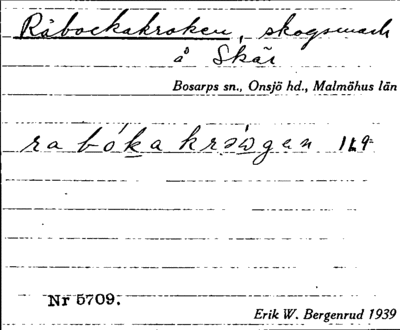 Råbockakroken, skogsmark
å Skär
Bosarps sn., Onsjö hd., Malmöhus län
Nr 5709.
Erik W. Bergenrud 1939